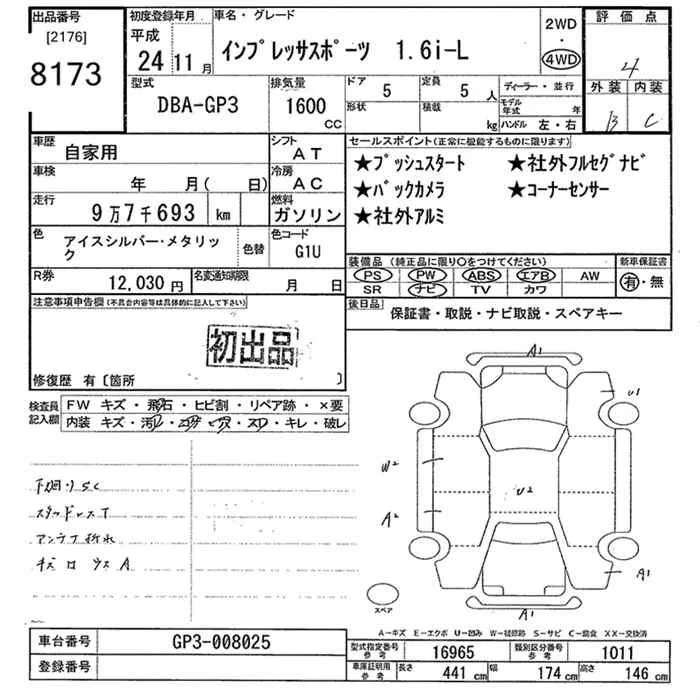 出品番号 初度登録年月 車名・グレード 2WD 評価点
[2176] 平成
8173 24 11 月 インプレッサスポーツ 1.6i-L ・ 4WD 4
外装 内装
B C
型式 排気量 ドア 定員 ディーラー・並行
DBA-GP3 1600 CC 5 5 人 モデル年式 年
形状 積載 kg ハンドル 左・右
車歴 自家用 シフト AT セールスポイント(正常に機能するものに限ります)
車検 年 月( 日) 冷房 AC ★プッシュスタート ★社外フルセグナビ
走行 9万7千693 km 燃料 ガソリン ★バックカメラ ★コーナーセンサー
★社外アルミ
色 アイスシルバー・メタリック 色替 色コード G1U
装備品 (純正品に限り○をつけてください) 新車保証書
PS PW ABS エアB AW 有・無
SR ナビ TV カワ
R券 12,030円 名変通知期限 月 日
後日品 保証書・取説・ナビ取説・スペアキー
注意事項申告欄(不具合内容等は具体的に記入して下さい)
初出品
修復歴 有〔箇所 〕
検査員記入欄 FW キズ・飛石・ヒビ割・リペア跡・×要
内装 キズ・汚レ・コゲ・穴・スレ・キレ・破レ
下回りSC
スタッドレスT
アンテナ折れ
A1
U1
W2
U2
A2
A1
A1
スペア
A-キズ E-エクボ U-凹み W-補修跡 S-サビ C-腐食 XX-交換済
車台番号 GP3-008025
登録番号
型式指定番号 参考 16965 類別区分番号 参考 1011
車庫証明用 参考 長さ 441 cm 幅 174 cm 高さ 146 cm